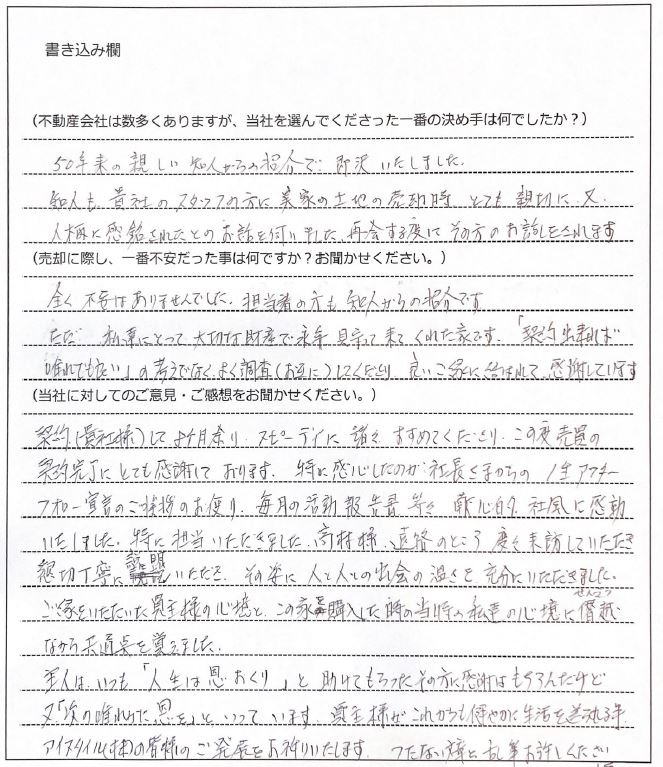 書き込み欄
（不動産会社は数多くありますが、当社を選んでくださった一番の決め手は何でしたか？）
50年来の親しい知人からの紹介で 即決いたしました.
知人も 貴社のスタッフの方に 実家の土地の売却時 とても 親切に、又.
人柄に感銘されたとのお話を伺いました、再会する度に その方のお話をされます
（売却に際し、一番不安だった事は何ですか？お聞かせください。）
全く 不安はありませんでした. 担当者の方も 知人からの紹介です
ただ 私達にとって 大切な財産で永年 見守って来てくれた家です. 「契約出来れば
誰れでも良い」の考えでなく、よく調査(お互に)してくださり 良いご縁に結ばれて 感謝しています
（当社に対してのご意見・ご感想をお聞かせください。）
契約(貴社様)して ヶ月余り、スピーディに 諸々 すすめてくださり この度売買の
契約完了にとても感謝しております. 特に感心したのが 社長さまからの 一生アフター
フォロー宣言のご挨拶のお便り、毎月の活動報告書 等々 献心的 社風に感動
いたしました. 特に担当いただきました 高村様 遠路のところ 度々来訪していただき
懇切丁寧に説明いただき その姿に 人と人との出会の温さを 充分にいただきました.
ご縁をいただいた買主様の心境と この家購入した時の当時の私達の心境に僭越(せんえつ)
ながら共通点を覚えました.
主人は いつも 「人生は恩おくり」と 助けてもらったその方に感謝はもちろんだけど
又「次の誰れかに恩を」といっています. 買主様が これからも健やかに生活を送られる事
アイスタイル(株)の皆様の ご発展をお祈りいたします. つたない文章と乱筆お許しください